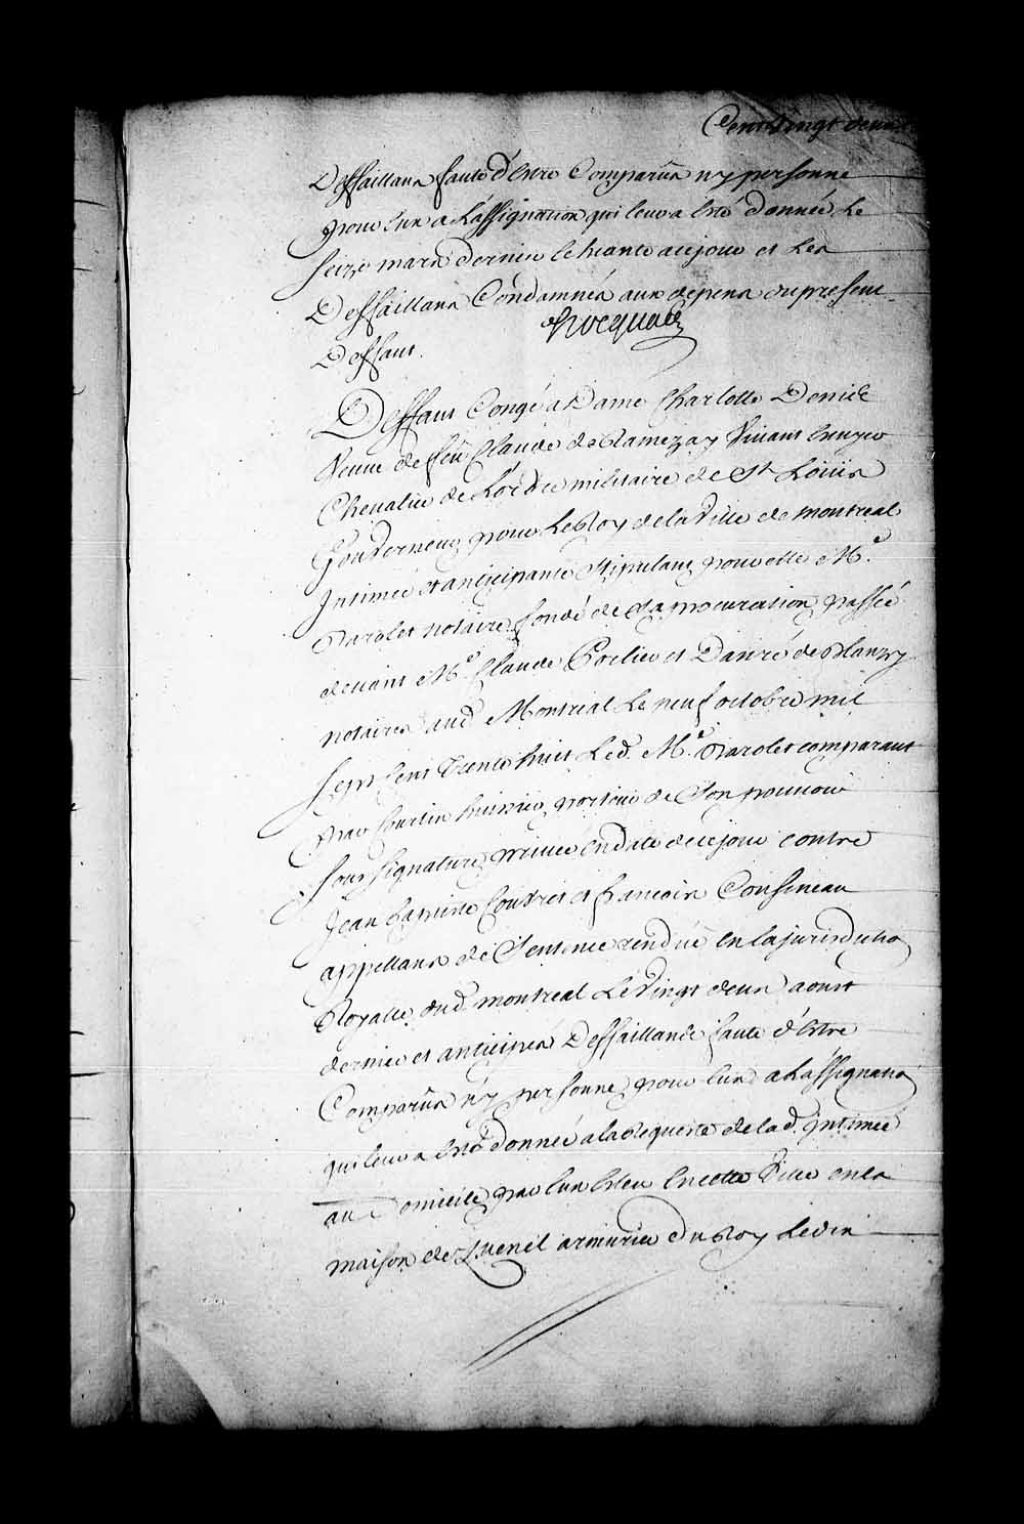 Cent vingt deux
Deffaillans faute d'Estre Comparûs ny personne
pour Eux a L'assignation qui leur a Esté donnée Le
seize mars dernier Echeante a ce jour et Les
Deffaillans Condamnés aux depens du present
Deffaut.
hocquart
Deffaut Congé a Dame Charlotte Denis
Veuve de feu Claude de Ramezay Vivant Ecuyer
Chevalier de L'ordre militaire de St Loüis
Gouverneur pour Le Roy de la Ville de Montreal
Intimée et anticipante Stipulant pour elle Me.
Barolet notaire fondé de Sa procuration passée
devant Me. Claude Porlier et Danré de Blanzy
notaires aud Montreal Le neuf octobre mil
sept Cent trente huit Led. Me. Barolet comparant
par Courtin huissier porteur de Son pouvoir
sous signature privée En date de ce jour contre
Jean Baptiste Coutret et francois Cousineau
appellans de Sentence rendüe en la jurisdictio
Royalle dud montreal Le Vingt deux aoust
dernier et anticipés Deffaillans faute d'Estre
Comparûs n'y personne pour Eux a L'assignatio
qui leur a Esté donnée a la Requeste de lad. Intimée
au Domicile par Eux Esleu En cette Ville en la
maison de Quenel armurier du Roy Le dix